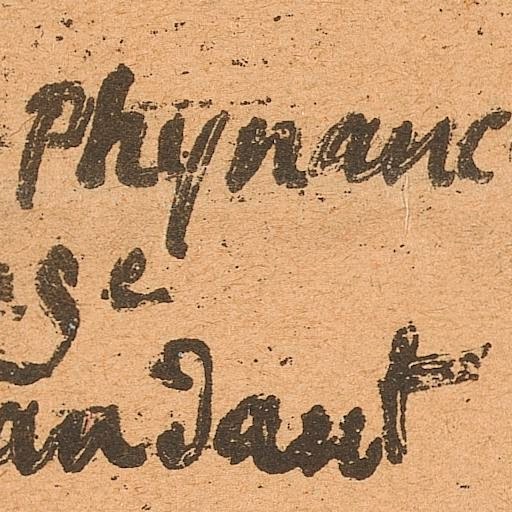 Phynanc
ege
andant